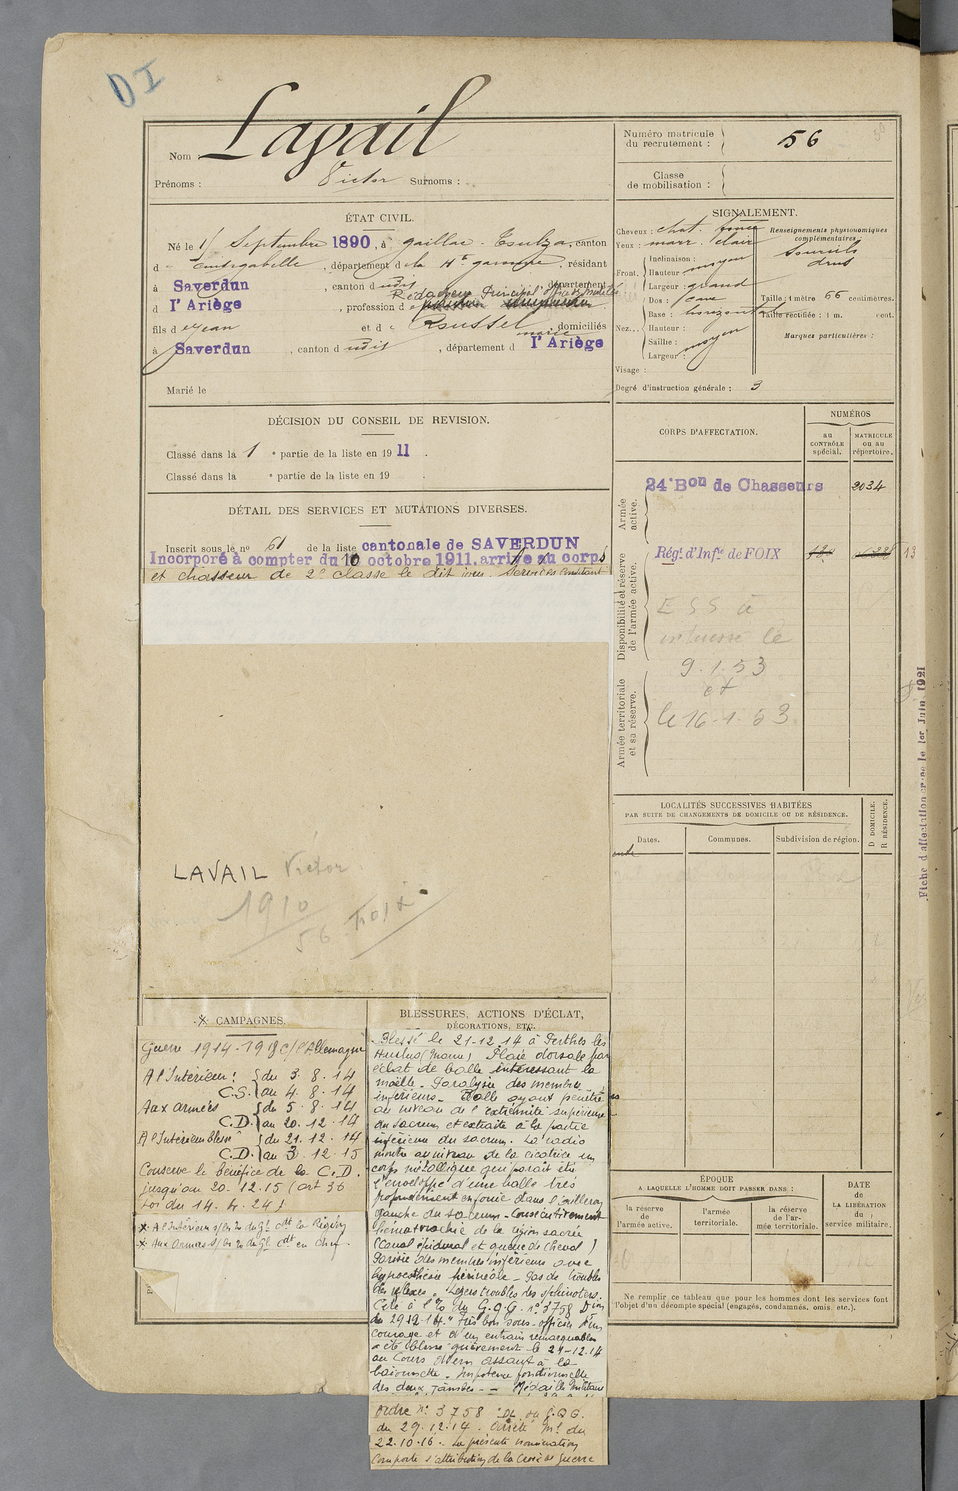 DI
Nom : Lavail
Prénoms : Victor Surnoms :
Numéro matricule
du recrutement : 56
Classe
de mobilisation :
ÉTAT CIVIL.
Né le 15 Septembre 1890, à gaillac-Toulza, canton
de Cintegabelle, département de la Hte garonne, résidant
à Saverdun, canton dudit, département
Rédacteur Principal
d l'Ariège, profession d
fils de Jean et de Roussel marie, domiciliés
à Saverdun, canton dudit, département d l'Ariège
Marié le
SIGNALEMENT.
Cheveux : chat. foncé
Yeux : marr. clair
Front. Inclinaison : moyen
Hauteur :
Largeur : grand
Nez... Dos : cave
Base : horizontal
Hauteur :
Saillie : moyen
Largeur :
Visage :
Renseignements physionomiques
complémentaires :
Sourcils
drus
Taille : 1 mètre 66 centimètres.
Taille rectifiée : 1 m. cent.
Marques particulières :
Degré d'instruction générale : 3
DÉCISION DU CONSEIL DE REVISION.
Classé dans la 1 e partie de la liste en 1911.
Classé dans la e partie de la liste en 19 .
DÉTAIL DES SERVICES ET MUTATIONS DIVERSES.
Inscrit sous le no 61 de la liste cantonale de SAVERDUN
Incorporé à compter du 10 octobre 1911, arrivé au corps
et chasseur de 2e classe le dit jour.
CORPS D'AFFECTATION.
NUMÉROS
AU
CONTRÔLE
spécial.
MATRICULE
OU AU
répertoire.
Armée
active.
24e Bon de Chasseurs 2034
Disponibilité et réserve
de l'armée active.
Régt d'Infie de FOIX 13
ESS à
le
9.1.53
et
le 16-1-53
Armée territoriale
et sa réserve.
Fiche d'affectation créée le 1er Juin 1921
LOCALITÉS SUCCESSIVES HABITÉES
PAR SUITE DE CHANGEMENTS DE DOMICILE OU DE RÉSIDENCE.
Dates. Communes. Subdivision de région.
D DOMICILE.
R RÉSIDENCE.
LAVAIL Victor
1910
56 FOIX
* CAMPAGNES.
Guerre 1914-1918 c/ l'Allemagne
A l'Intérieur : du 3.8.14
C.S. au 4.8.14
Aux armées du 5.8.14
C.D. au 20.12.14
A l'Intérieur blessé du 21.12.14
C.D. au 3.12.15
Conserve le bénéfice de la C.D.
jusqu'au 20.12.15 (art 36
Loi du 14.4.24)
BLESSURES, ACTIONS D'ÉCLAT,
DÉCORATIONS, ETC.
Blessé le 21-12 14 à Perthes les
Hurlus (Marne) Plaie dorsale par
éclat de balle intéressant la
moëlle. Paralysie des membres
inférieurs. Balle ayant pénétré
au niveau de l'extrémité supérieure
du sacrum et extraite à la partie
inférieure du sacrum. La radio
montre au niveau de la cicatrice un
corps métallique qui parait être
l'enveloppe d'une balle très
profondément enfouie dans l'aileron
gauche du sacrum. Consécutivement
hématorachie de la région sacrée
(Canal épidural et queue de cheval)
Parésie des membres inférieurs avec
hypoesthésie périnéale. Pas de troubles
des réflexes. Légers troubles des sphincters.
Cité à l'O du G.Q.G. no 3758 D
du 29.12.14. "Très bon sous-officier d'un
courage et d'un entrain remarquables
a été blessé grièvement le 21-12.14
au cours d'un assaut à la
baïonnette. Impotence fonctionnelle
des deux jambes. Médaille Militaire
Ordre no 3758 "D" du G.Q.G.
du 29.12.14. Arrêté Mel du
22.10.16. La présente nomination
comporte l'attribution de la Croix de Guerre
ÉPOQUE
A LAQUELLE L'HOMME DOIT PASSER DANS :
la réserve
de
l'armée active.
l'armée
territoriale.
la réserve
de l'ar-
mée territoriale.
DATE
de
LA LIBÉRATION
du
service militaire.
Ne remplir ce tableau que pour les hommes dont les services font
l'objet d'un décompte spécial (engagés, condamnés, omis, etc.).